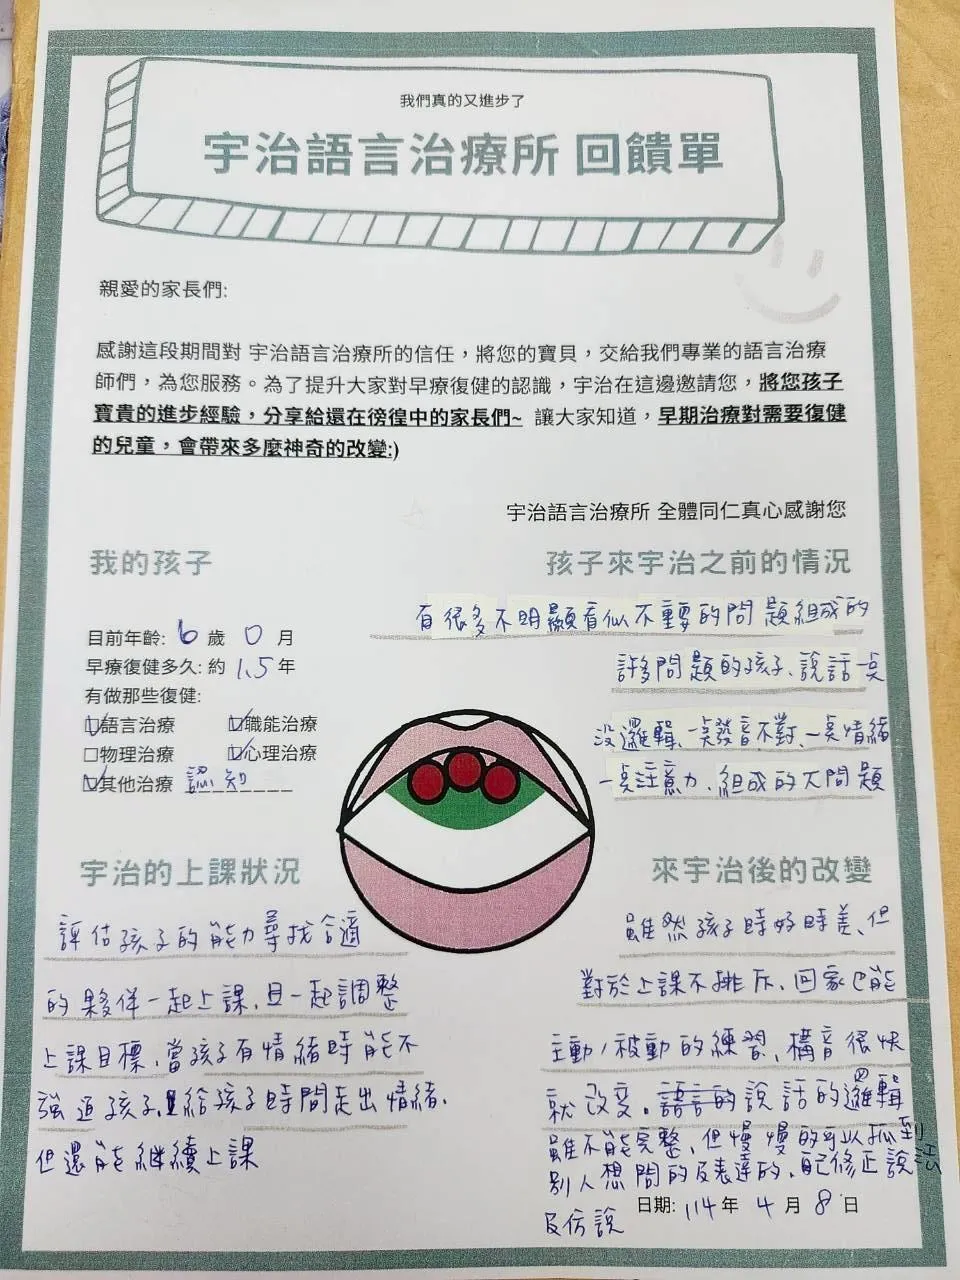 我們真的又進步了
宇治語言治療所 回饋單
親愛的家長們:
感謝這段期間對 宇治語言治療所的信任，將您的寶貝，交給我們專業的語言治療
師們，為您服務。為了提升大家對早療復健的認識，宇治在這邊邀請您，將您孩子
寶貴的進步經驗，分享給還在徬徨中的家長們~ 讓大家知道，早期治療對需要復健
的兒童，會帶來多麼神奇的改變:)
宇治語言治療所 全體同仁真心感謝您
我的孩子
目前年齡: 6 歲 0 月
早療復健多久: 約 1.5 年
有做那些復健:
☑語言治療 ☑職能治療
☐物理治療 ☑心理治療
☑其他治療 認知
孩子來宇治之前的情況
有很多不明顯看似不重要的問題組成的
許多問題的孩子、說話一點
沒邏輯、一點發音不對、一點情緒
一點注意力、組成的大問題
宇治的上課狀況
評估孩子的能力尋找合適
的夥伴一起上課、且一起調整
上課目標、當孩子有情緒時能不
強迫孩子、給孩子時間走出情緒、
但還能繼續上課
來宇治後的改變
雖然孩子時好時差、但
對於上課不排斥、回家也能
主動/被動的練習、構音很快
就改變。說話的邏輯
雖不能完整、但慢慢的可以
別人想問的及表達的、自己修正說
及仿說
日期: 114 年 4 月 8 日